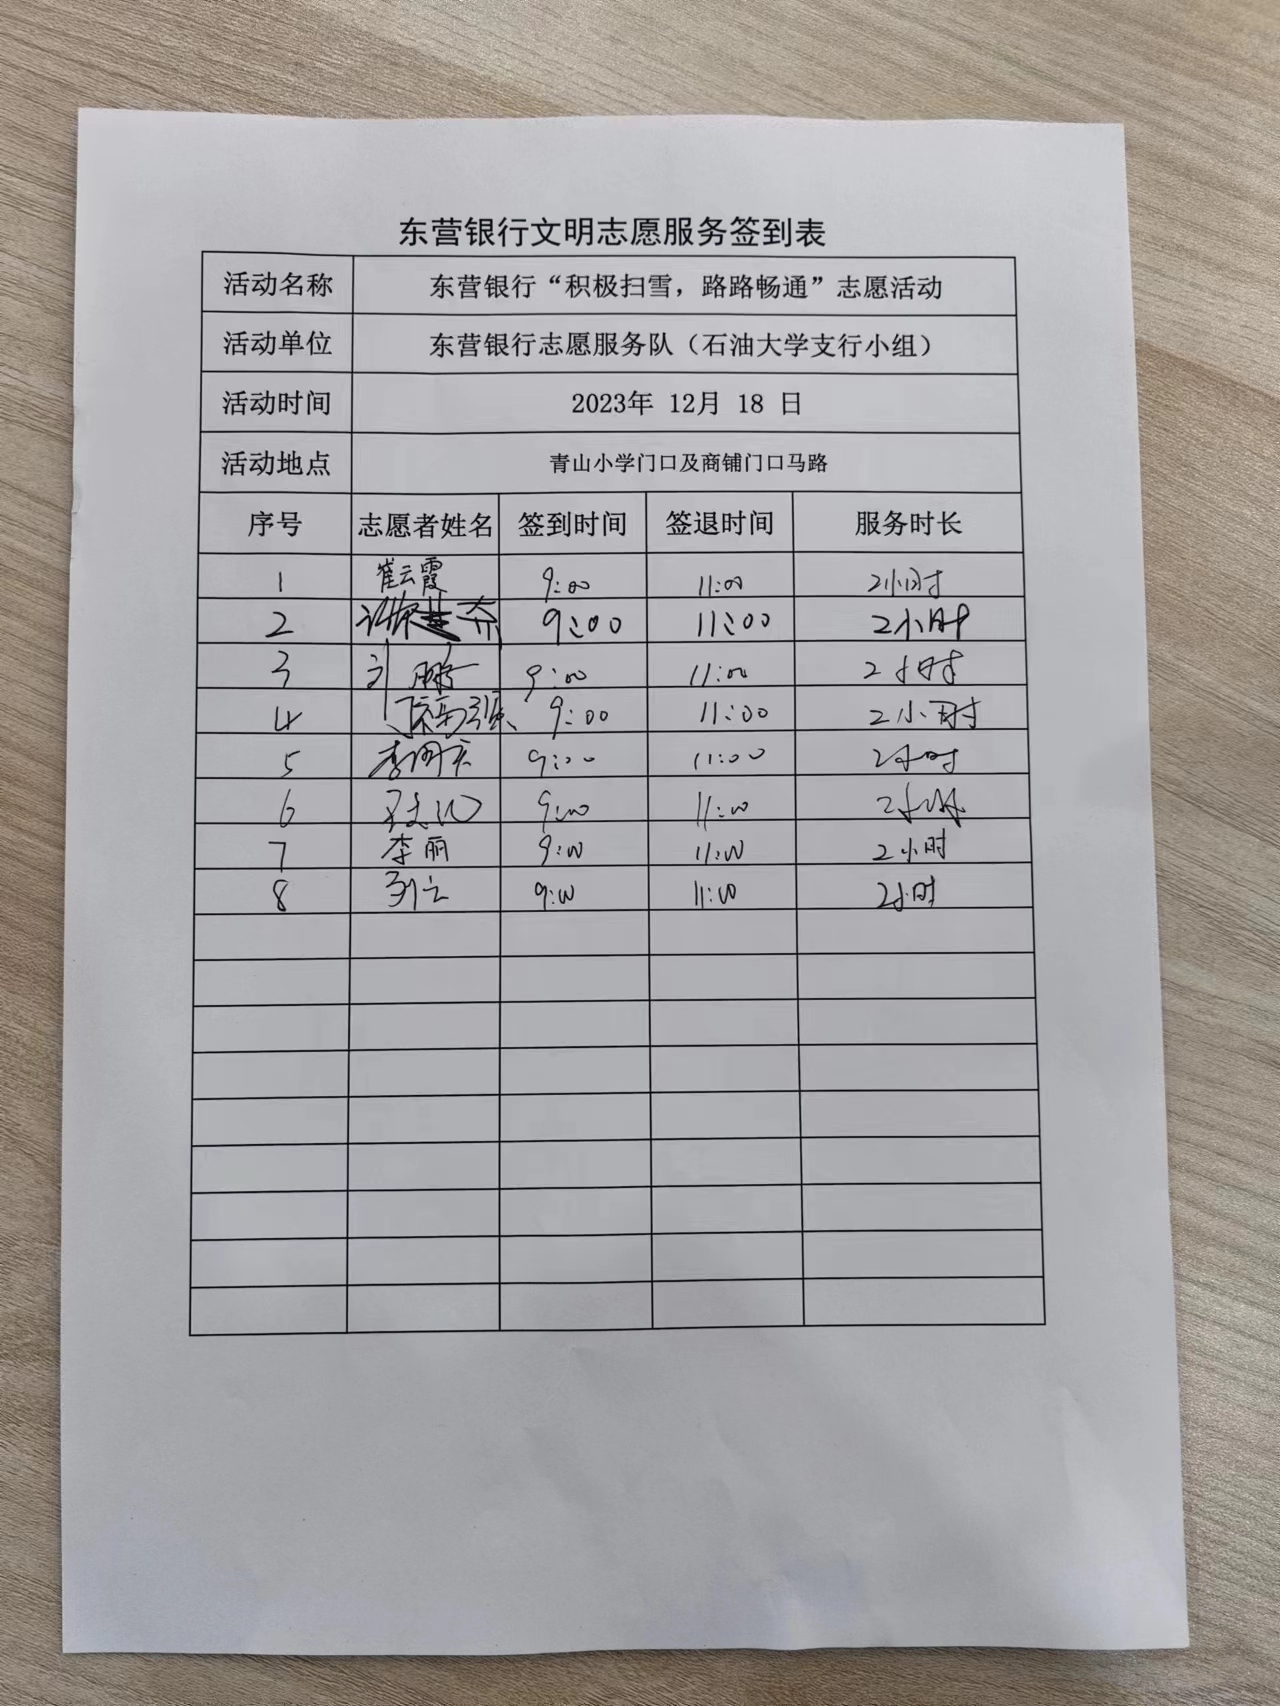 东营银行文明志愿服务签到表
活动名称 东营银行“积极扫雪，路路畅通”志愿活动
活动单位 东营银行志愿服务队（石油大学支行小组）
活动时间 2023年 12月 18 日
活动地点 青山小学门口及商铺门口马路
序号 志愿者姓名 签到时间 签退时间 服务时长
1 崔云霞 9:00 11:00 2小时
2 9:00 11:00 2小时
3 刘鹏 9:00 11:00 2小时
4 9:00 11:00 2小时
5 9:00 11:00 2小时
6 9:00 11:00 2小时
7 李丽 9:00 11:00 2小时
8 9:00 11:00 2小时